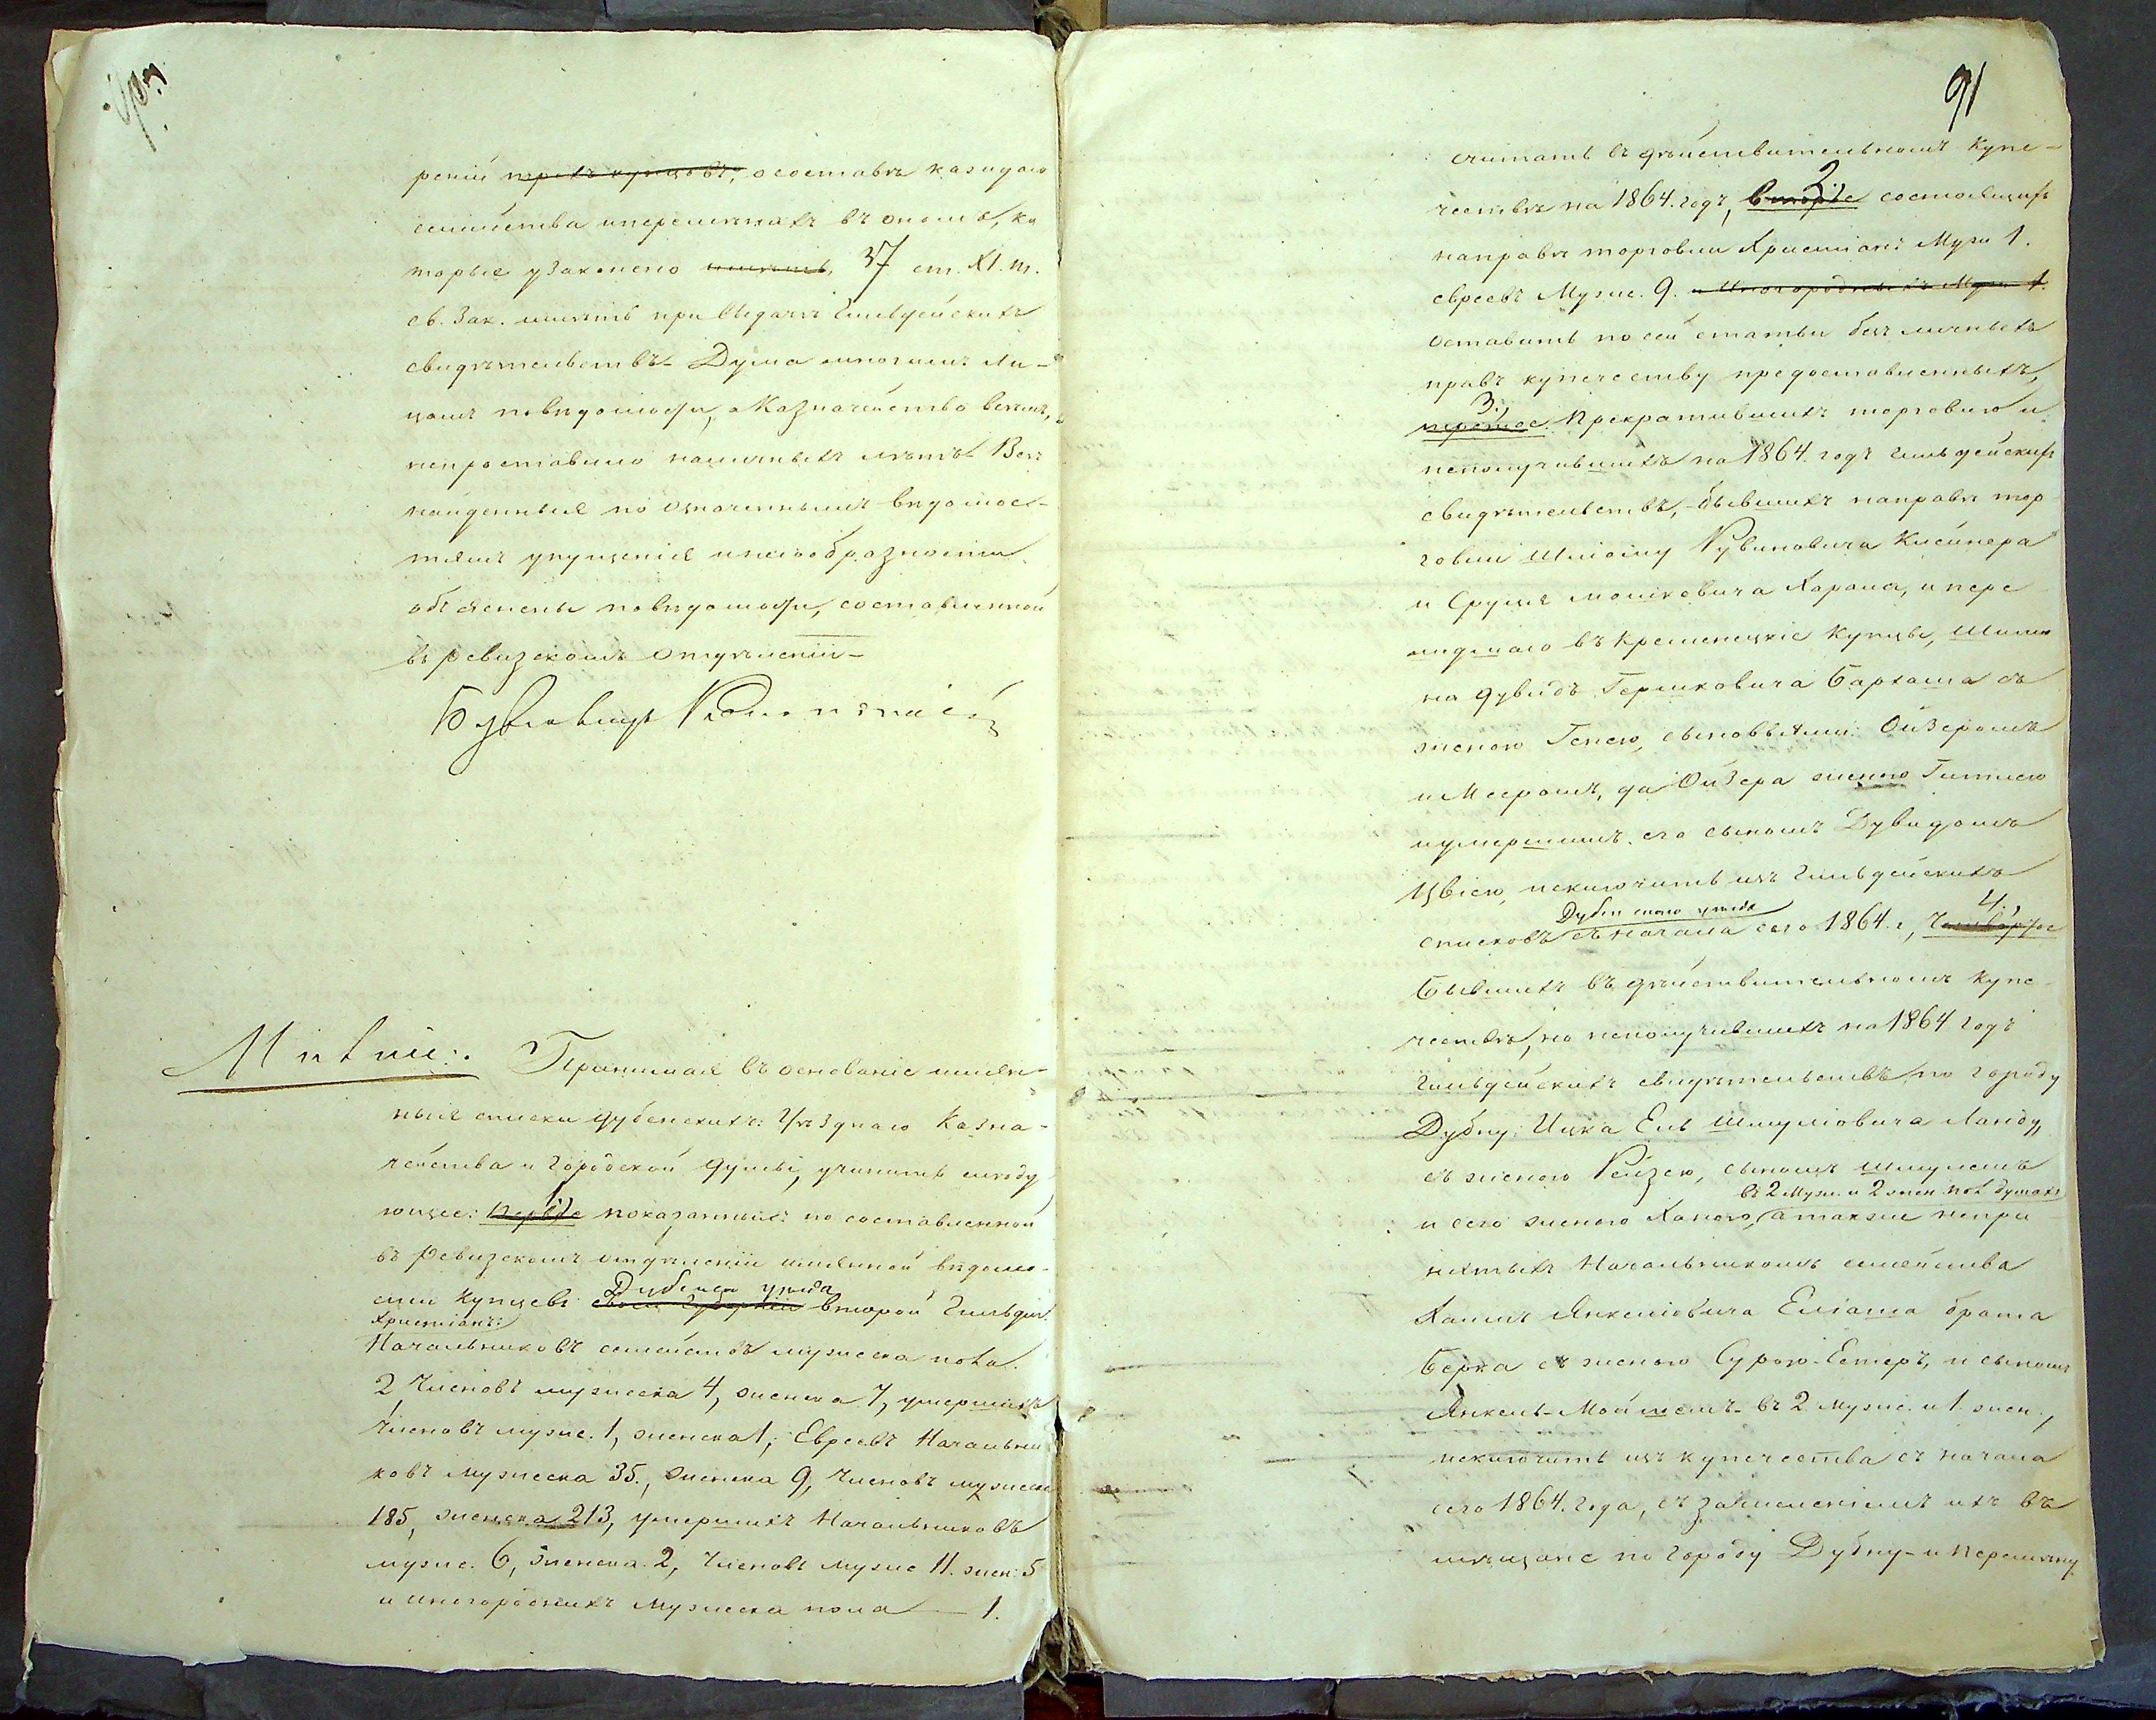 рений трехъ купцовъ, о составѣ каждого
семейства и перемѣнахъ въ ономъ, ко
торые узаконено имѣть, 37 ст. XI. т.
св. Зак. имѣть при выдачѣ Гильдейскихъ
свидѣтельствъ. Дума многимъ ли-
цамъ по вѣдомости, а Казначейство всѣмъ,
непроставило наличныхъ лѣтъ. Всѣ
найденныя по означеннымъ вѣдомос-
тямъ упущенія и несообразности
объяснены по вѣдомости, составленной
въ ревизскомъ отдѣленіи
Мнѣніе: Принимая въ основаніе имян-
ныя списки Дубенскихъ: Уѣзднаго Казна-
чейства и городской Думы, учинить слѣду
ющее: 1. первое показанныхъ по составленной
въ Ревизскомъ отдѣленіи имянной вѣдомо-
сти Купцевъ Дубенска уѣзда второй Гильдіи
Христіанъ:
Начальниковъ семействъ мужеска пола
2 Членовъ мужеска 4, женска 7, умершихъ
Членовъ мужс. 1, женска 1; Евреевъ Начальни
ковъ мужеска 35., женска 9, Членовъ мужеска
185, женска 213, умершихъ Начальниковъ
мужс. 6, женска. 2, Членовъ мужс 11. жен: 5
и иногородныхъ мужеска пола — 1.
91
считать въ дѣйствительномъ Купе-
чествѣ на 1864. годъ, 2. второе состоящихъ
на правѣ торговли Христіанъ Муж 1.
евреевъ Мужс. 9. и Иногородныхъ Муж 1.
оставить по сей статьи безъ личныхъ
правъ купечеству предоставленныхъ,
3. третее. Прекратившихъ торговлю и
неполучившихъ на 1864. годъ гильдейскихъ
свидѣтельствъ, бывшихъ на правѣ тор
говли Шліому Рувиновича Клейнера
и Сруля Мошковича Харана, и пере
шедшаго въ Кременецкіе Купцы,
на Дувидъ Гершковича Бархаша съ
женою Генею, сыновьями: Ойзеромъ
и Мееромъ, да Ойзера женою Гитлею
и умершимъ его сыномъ Дувидомъ
Цвіею, исключить изъ Гильдейскихъ
Дубенскаго уѣзда 4.
списковъ съ начала сего 1864. г, четвертое
бывшихъ въ дѣйствительномъ Купе-
чествѣ, но неполучившихъ на 1864 годъ
Гильдейскихъ свидѣтельствъ, по городу
Дубну: Ицка Ель Шмуліовича Ланду,
съ женою Рейзею, сыномъ Шмулемъ
въ 2 муж. и 2 жен. пол. душахъ
и сего женою Ханою, а также непри
нятыхъ Начальникомъ семейства
Хаимъ Янкеліовича Еліаша брата
Берка съ женою Сурою-Естеръ, и сыномъ
Янкель-Мойшемъ въ 2 мужс. и 1. жен.,
исключить изъ купечества съ начала
сего 1864. года, съ зачисленіемъ ихъ въ
мѣщане по городу Дубну и перемѣну